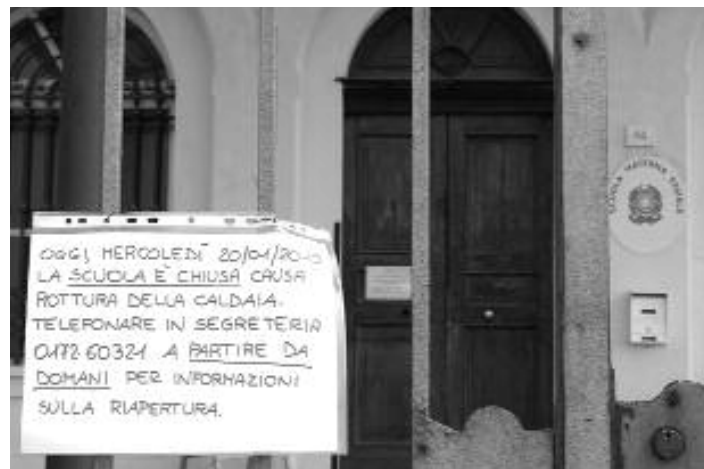 OGGI, MERCOLEDÌ 20/01/2010
LA SCUOLA È CHIUSA CAUSA
ROTTURA DELLA CALDAIA.
TELEFONARE IN SEGRETERIA
0172 60321 A PARTIRE DA
DOMANI PER INFORMAZIONI
SULLA RIAPERTURA.
SCUOLA MATERNA STATALE